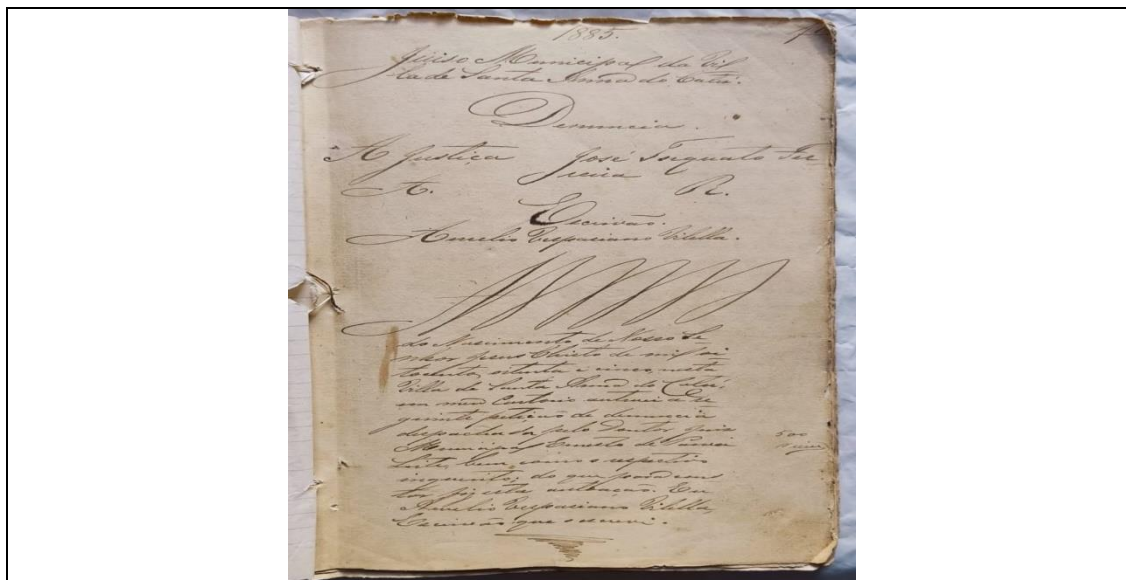 1885.
Juiso Municipal da Vil
la de Santa Anna do Catú.
Denuncia.
A Justiça José Torquato
A. R.
Escrivão.
Amelio Vespaciano Vilella.
do Nascimento de Nosso Se
nhor Jesus Christo de mil oi
tocentos oitenta e cinco, nesta
Villa de Santa Anna do Catú,
em meu Cartorio autuei a se
guinte petição de denuncia
despachada pelo Doutor Juis
Municipal Ernesto de
bem como o respectivo
inquerito; do que para cons
tar fiz esta autuação. Eu
Amelio Vespaciano Vilella,
Escrivão que o escrevi.
500